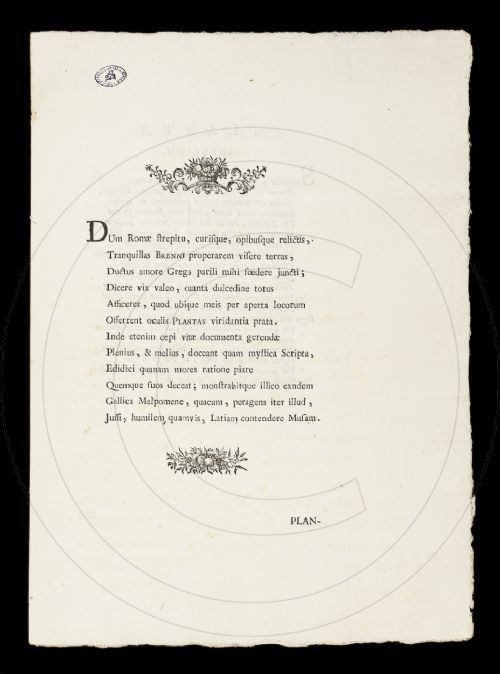 Dum Romæ ſtrepitu, curiſque, opibuſque relictis,
Tranquillas BRENNI properarem viſere terras,
Ductus amore Gregs parili mihi fœdere juncti;
Dicere vix valeo, quanta dulcedine totus
Afficerer, quod ubique meis per aperta locorum
Offerrent oculis PLANTAS viridantia prata.
Inde etenim cepi vitæ documenta gerendæ
Plenius, & melius, doceant quam myſtica Scripta,
Edidici quanam mores ratione piare
Quemque ſuos deceat; monſtrabitque illico eandem
Gallica Melpomene, quacum, peragens iter illud,
Juſſi, humilem quamvis, Latiam contendere Muſam.
PLAN-